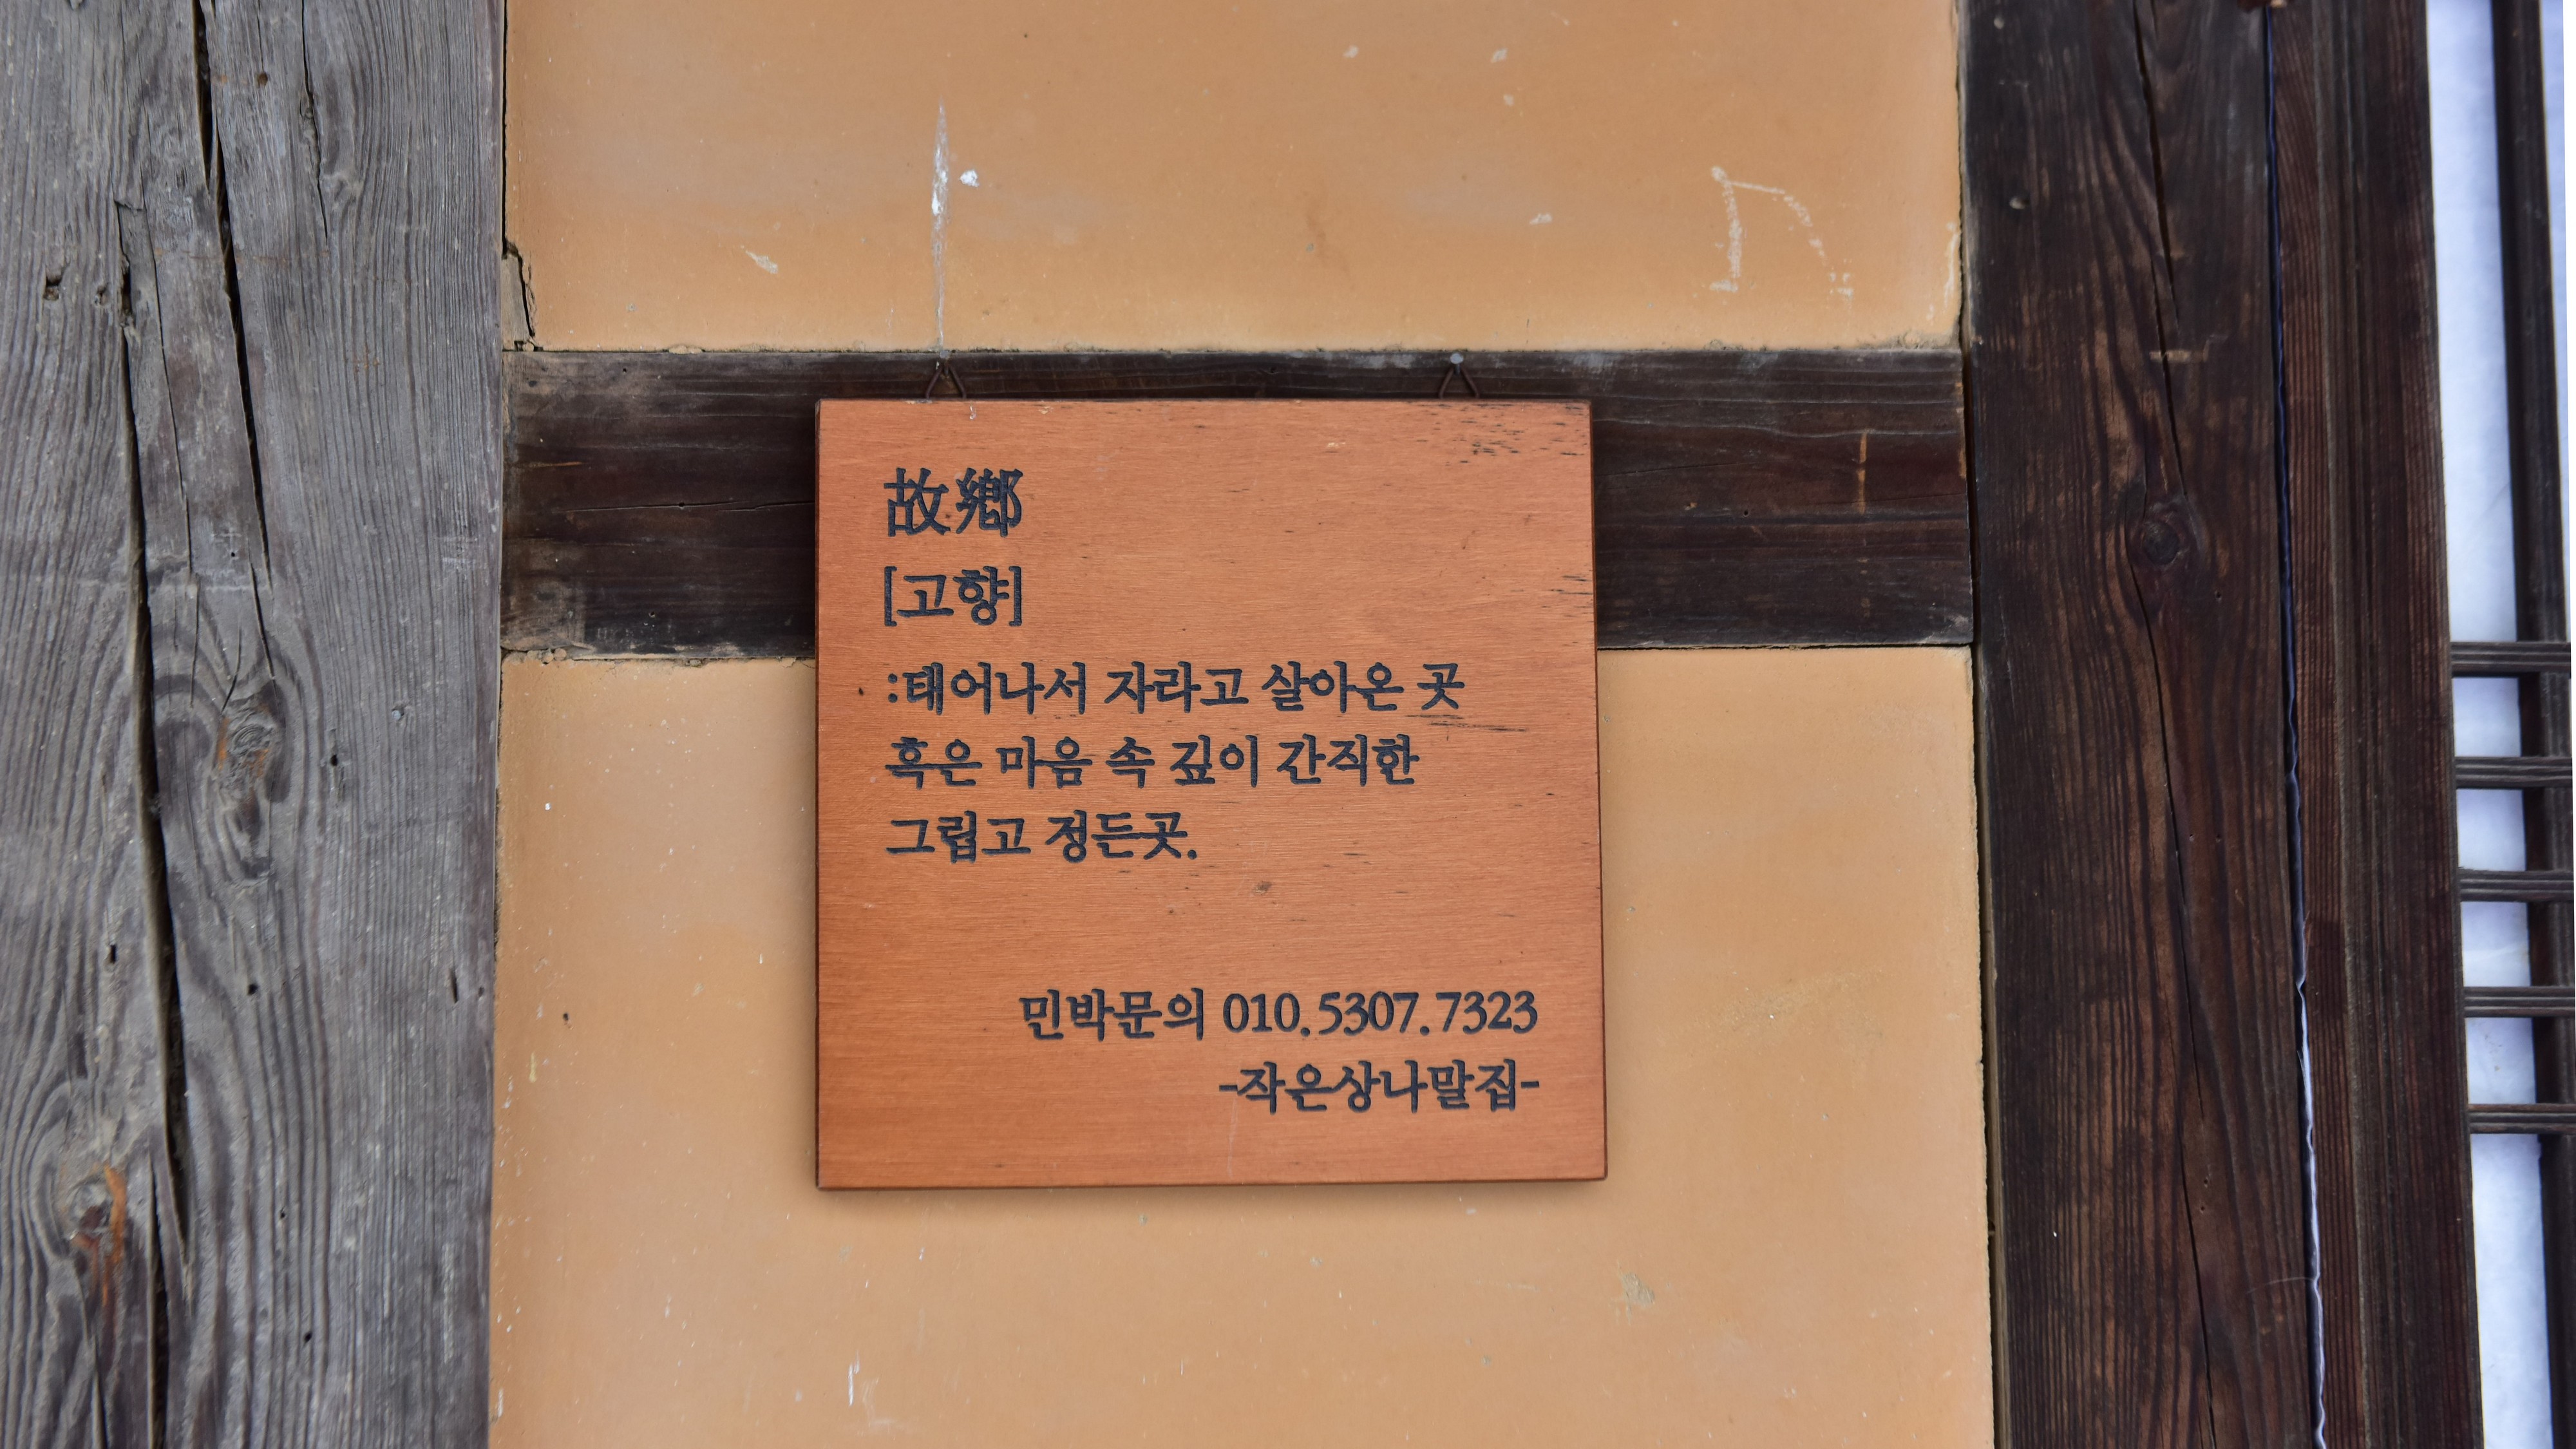 故鄕
[고향]
:태어나서 자라고 살아온 곳
혹은 마음 속 깊이 간직한
그립고 정든곳.
민박문의 010.5307.7323
-작은상나말집-